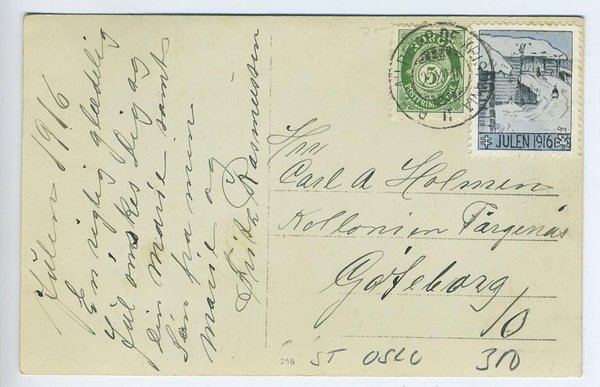 Julen 1916
En rigtig glædelig
Jul ønskes Dig og
din Marie samt
Søn fra min
Marie og
Fritz Rasmussen
75
NORGE
5
JULEN 1916
Hrr
Carl A Holmen
Kollonien Färgenäs
Göteborg
/O
256
ST OSLO 300